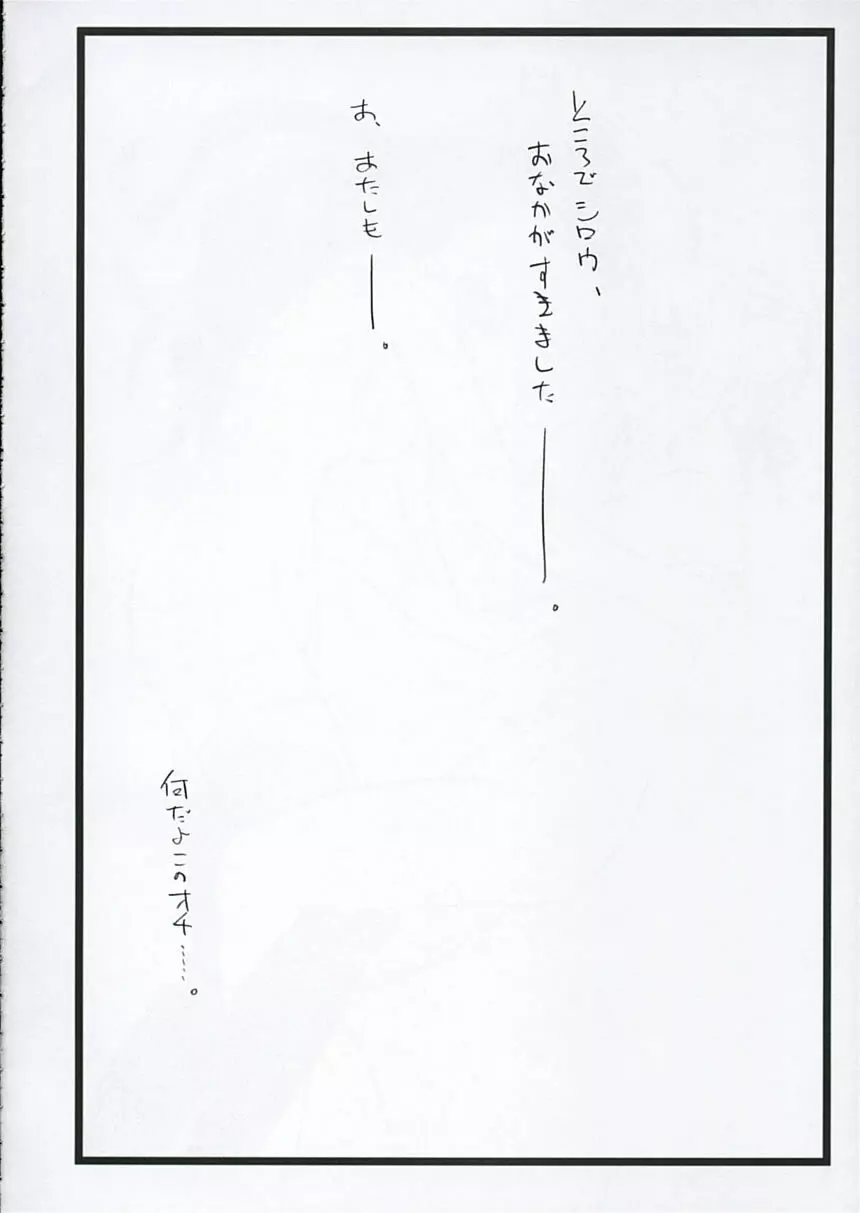 ところでシロウ、
おなかがすきました――。
あ、あたしも――。
何だよこのオチ……。